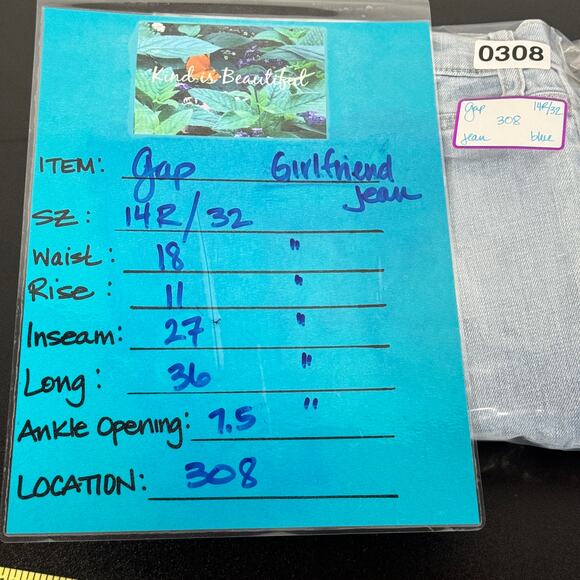 Kind is Beautiful
ITEM: Gap Girlfriend
Jean
SZ: 14R/32
Waist: 18 "
Rise: 11 "
Inseam: 27 "
Long: 36 "
Ankle Opening: 7.5 "
LOCATION: 308
0308
Gap 14R/32
308
Jean blue